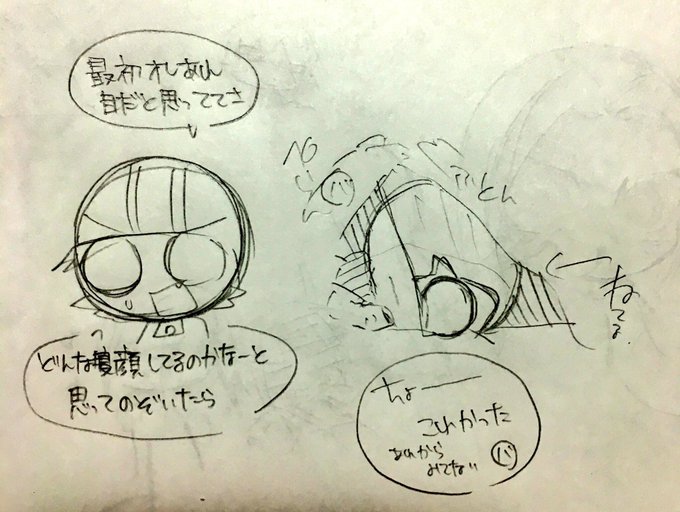 最初オレあれ
目だと思っててさ
どんな寝顔してるのかなーと
思ってのぞいたら
バ
ふとん
ねてる
ちょー
こわかった
あれから
みてない
バ